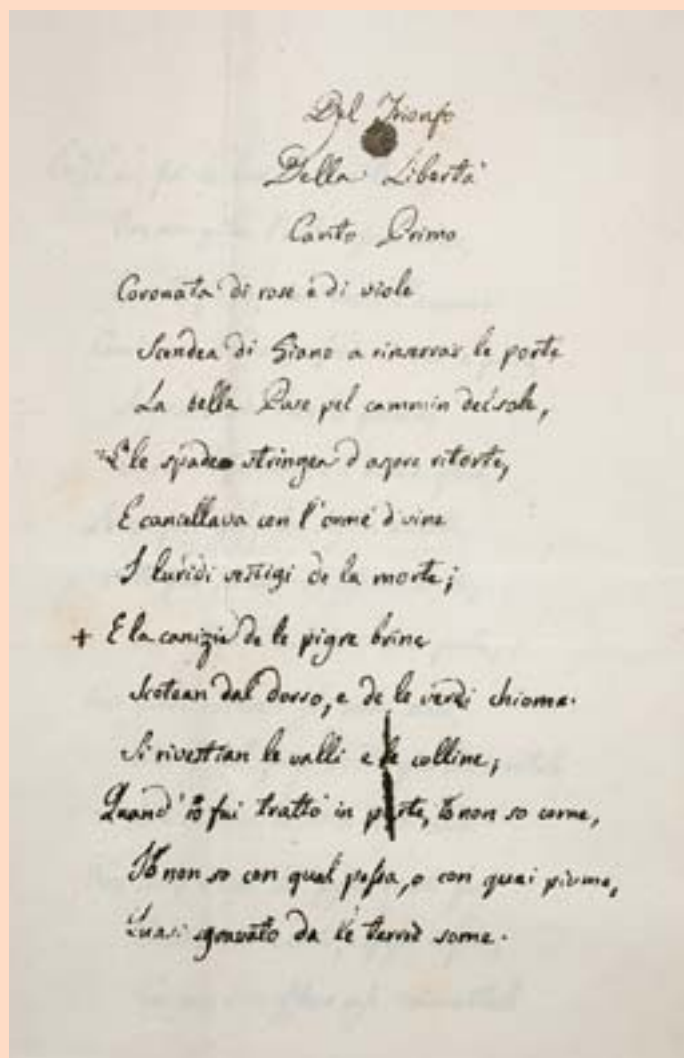 Del Trionfo
Della Libertà
Canto Primo
Coronata di rose e di viole
Scendea di Giano a rinserrar le porte
La bella Pace pel cammin del sole,
E le spade stringea d'aspre ritorte,
E cancellava con l'orme divine
I luridi vestigi de la morte;
+ E la canizie de le pigre brine
Scotean dal dorso, e de le verdi chiome
Si rivestian le valli e le colline;
Quand'io fui tratto in parte, Io non so come,
Io non so con qual possa, o con quai piume,
Quasi sgravato da le terree some.